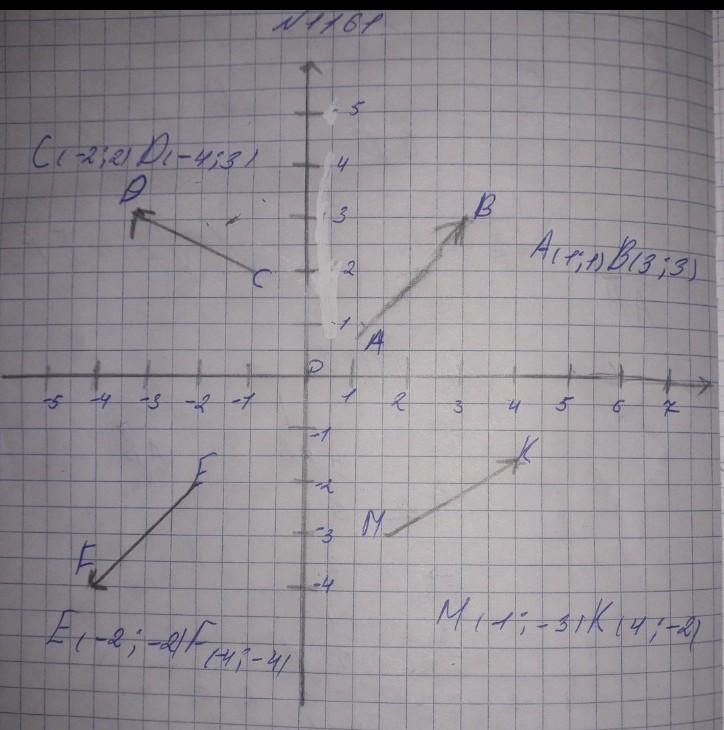 N1161
5
C(-2;2) D(-4;3)
4
D
3
B
A(1;1) B(3;3)
2
C
1
A
0
-5 -4 -3 -2 -1 1 2 3 4 5 6 7
-1
K
E
-2
M
-3
F
-4
M(-1;-3) K(4;-2)
E(-2;-2) F(-4;-4)